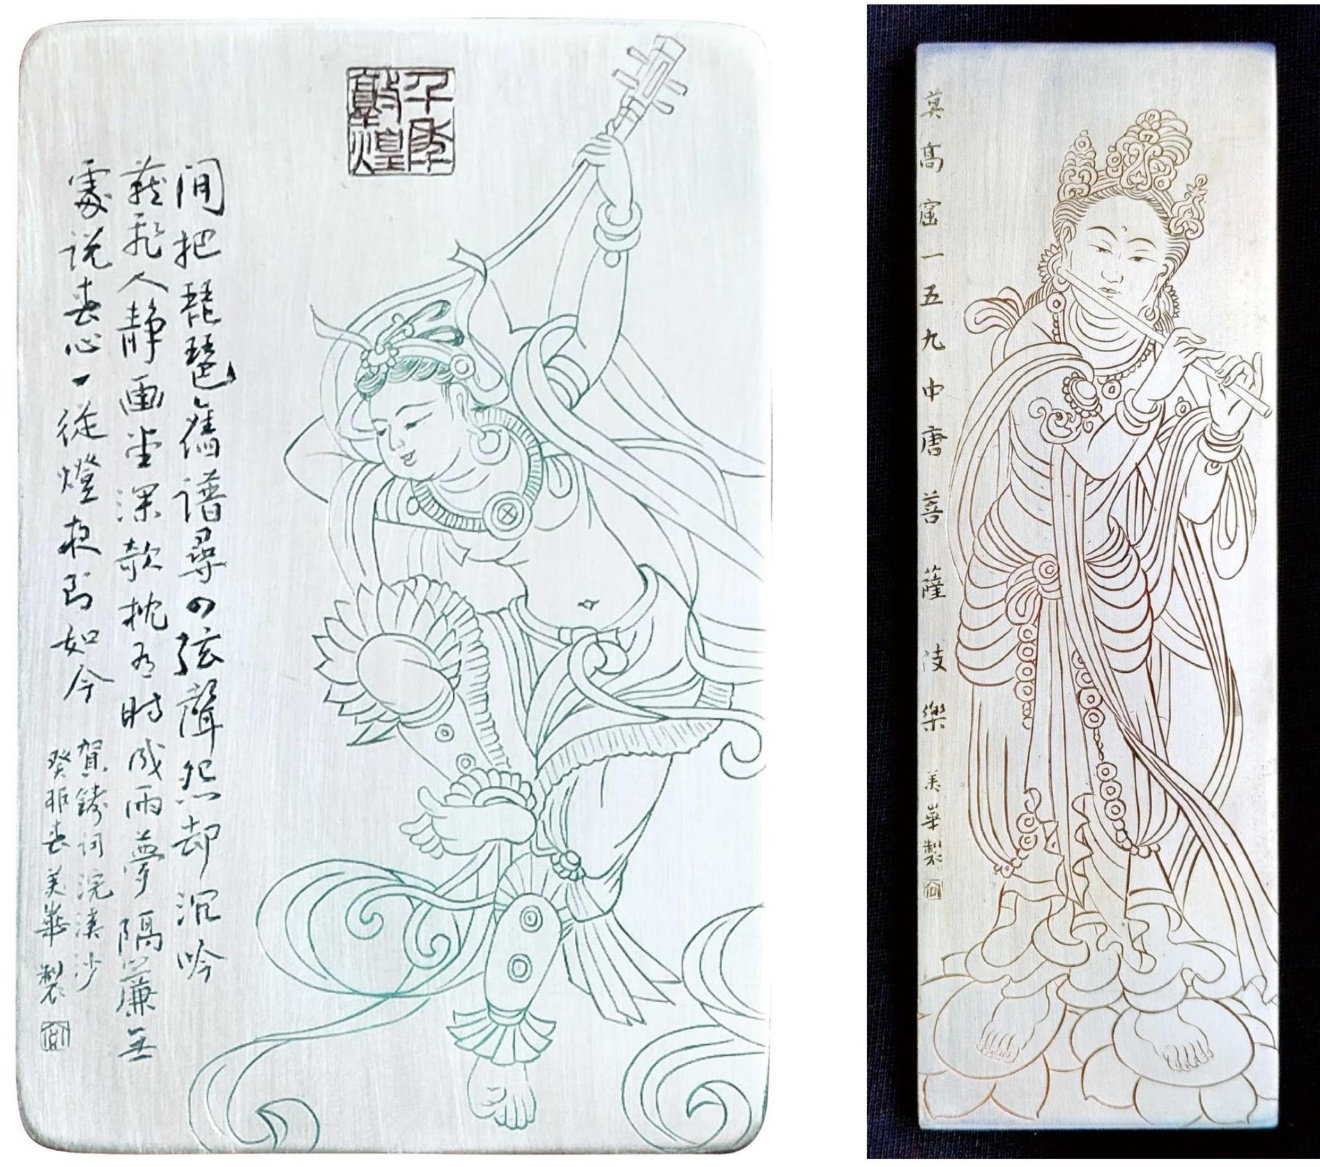 千年敦煌
閒把琵琶舊譜尋四弦聲怨却沉吟
燕飛人靜畫堂深欹枕有時成雨夢隔簾無
處說春心一從燈夜到如今
賀鑄詞浣溪沙
癸卯春美華製
莫高窟一五九中唐菩薩伎樂
美華製